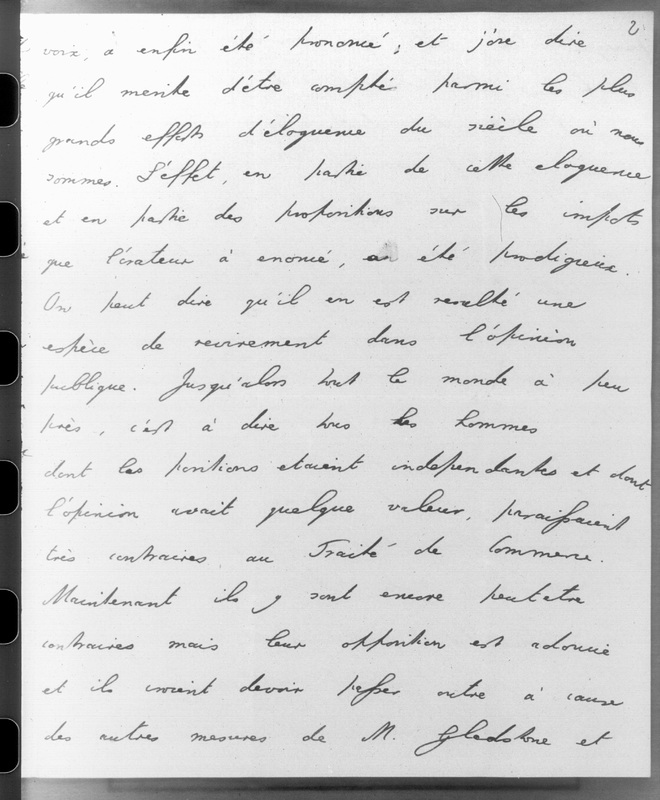 2
voix, à enfin été prononcé; et j'ose dire
qu'il merite d'être compté parmi les plus
grands efforts d'éloquence du siècle où nous
sommes. L'effet, en partie de cette eloquence
et en partie des propositions sur les impots
que l'orateur à enoncé, a été prodigieux.
On peut dire qu'il en est resulté une
espèce de revirement dans l'ópinion
publique. Jusqu'alors tout le monde à peu
près, c'est à dire tous les hommes
dont les positions etaient independantes et dont
l'ópinion avait quelque valeur, paraissaient
très contraires au Traité de Commerce.
Maintenant ils y sont encore peutetre
contraires mais leur opposition est adoucie
et ils croient devoir passer outre à cause
des autres mesures de M. Gladstone et